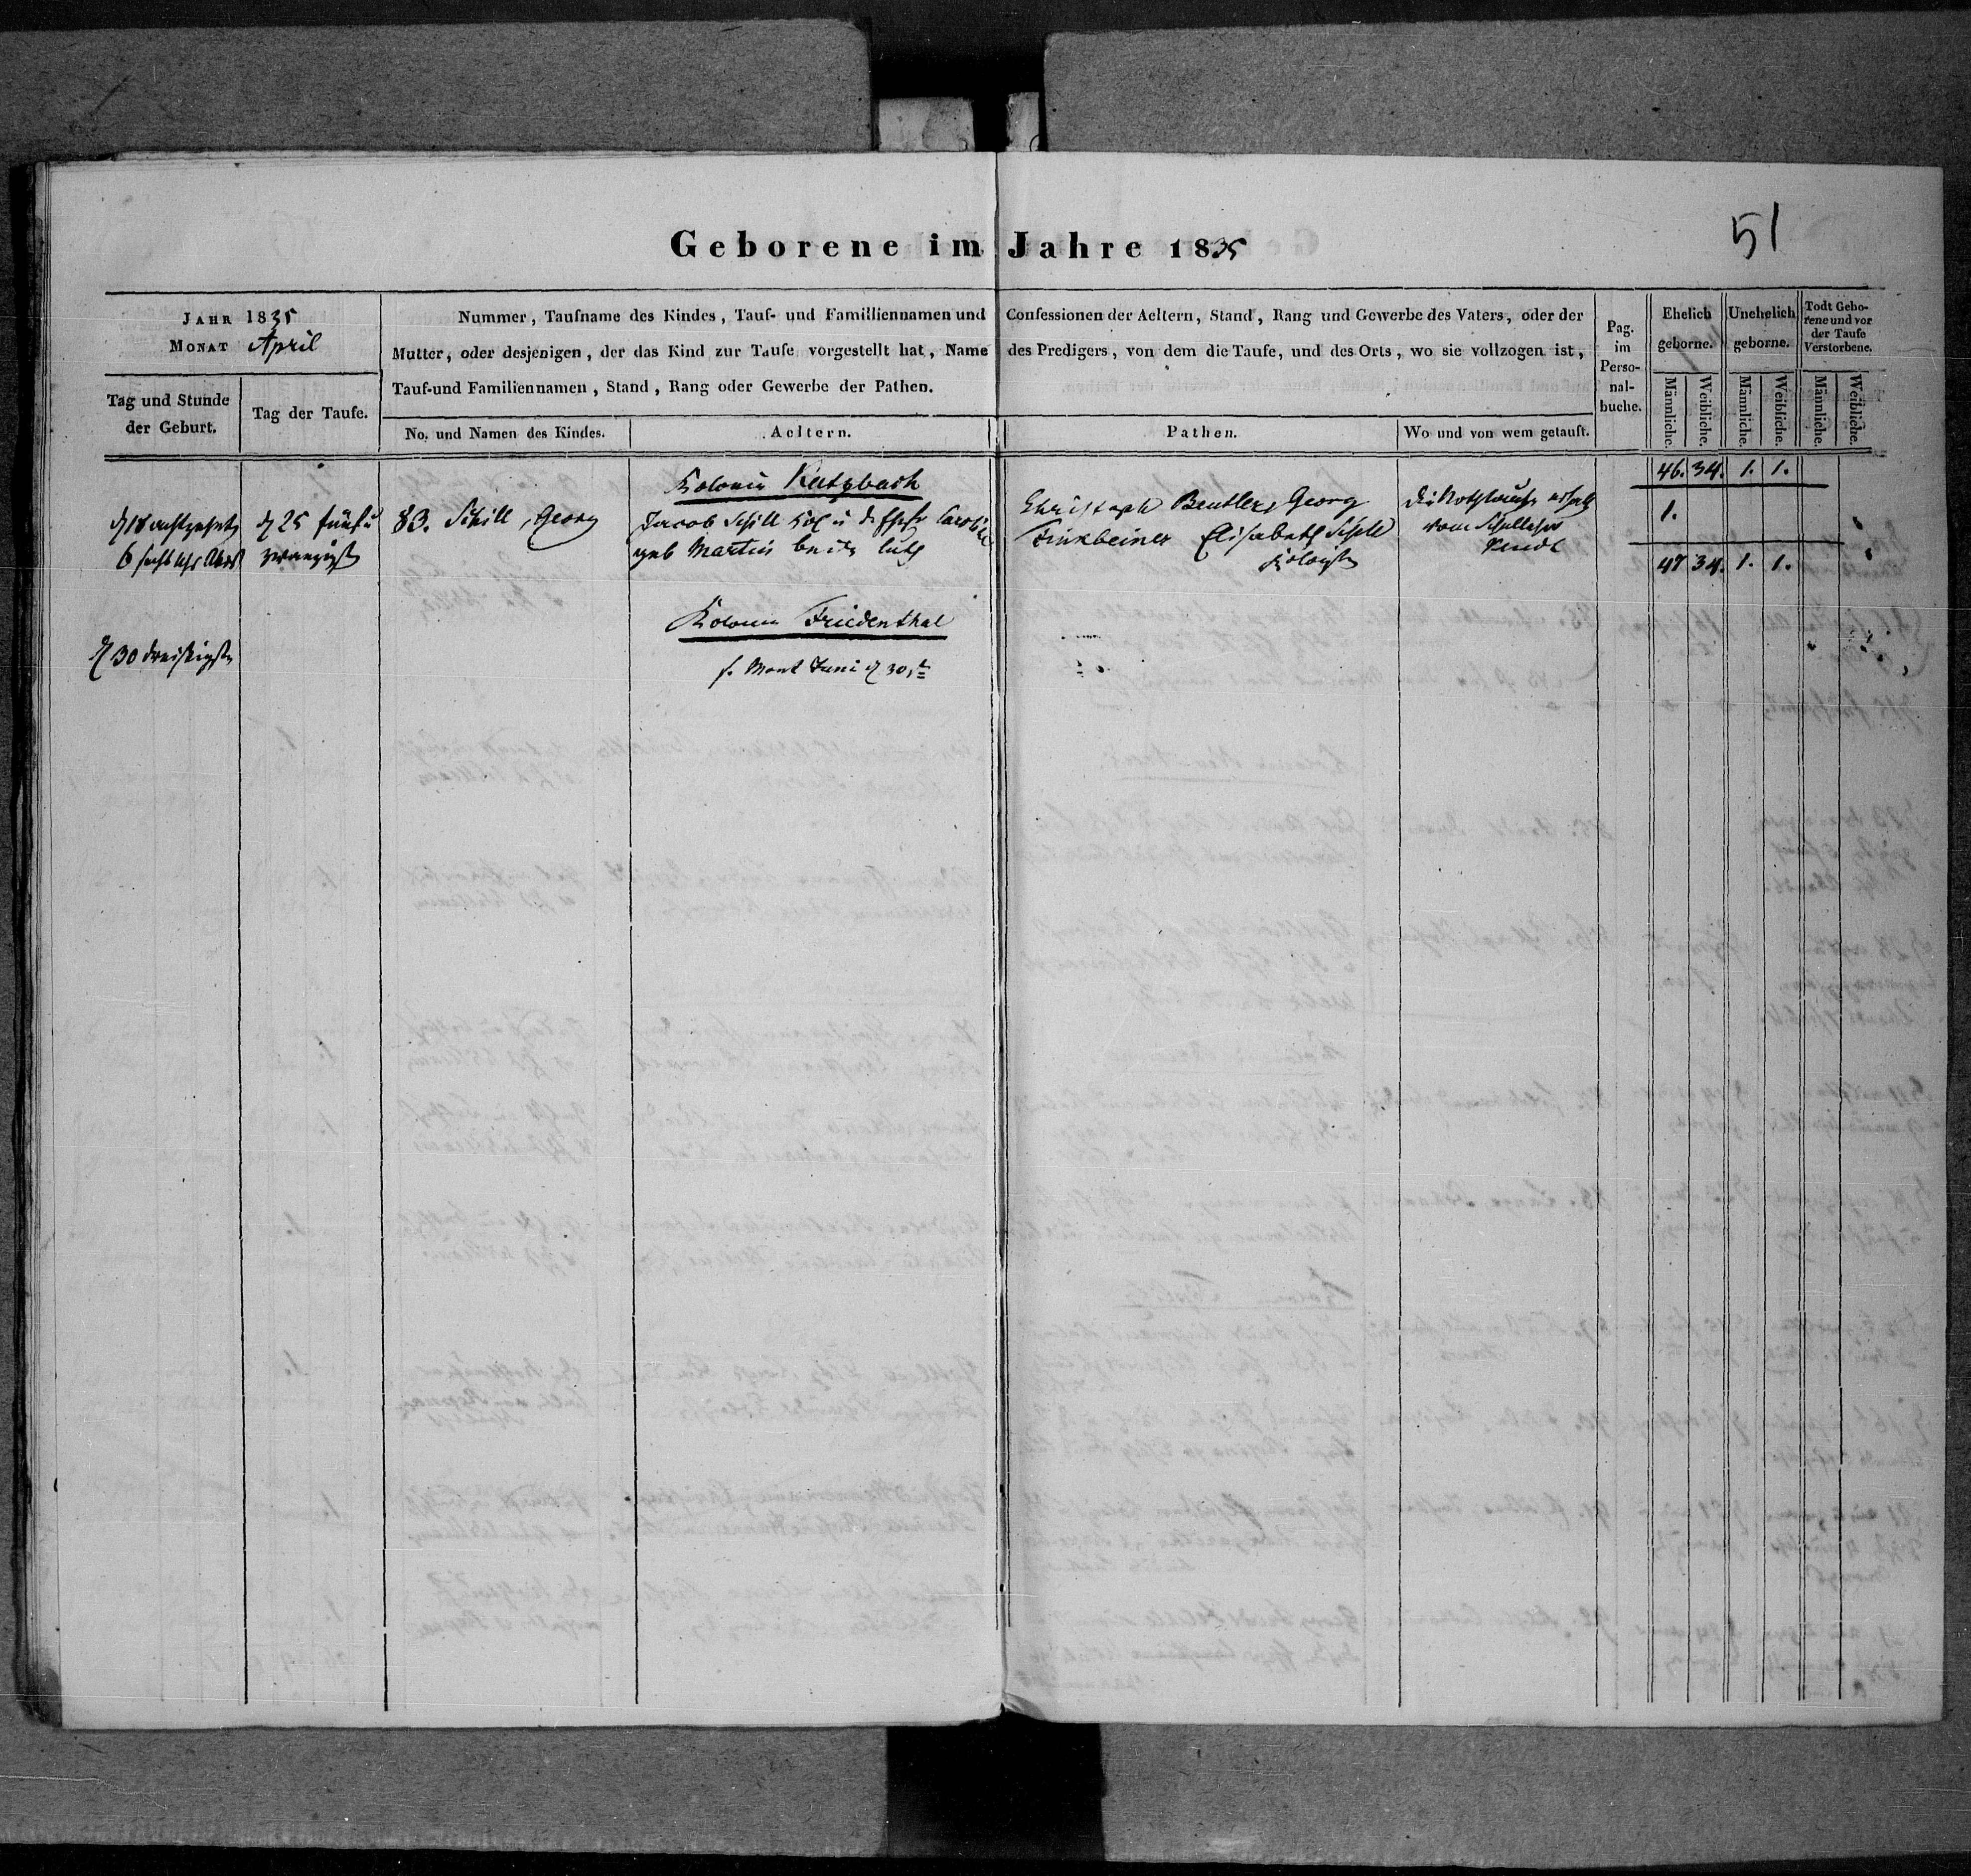 51
Geborene im Jahre 1835
JAHR 1835
MONAT April
Nummer, Taufname des Kindes, Tauf- und Familliennamen und Confessionen der Aeltern, Stand, Rang und Gewerbe des Vaters, oder der
Mutter, oder desjenigen, der das Kind zur Taufe vorgestellt hat, Name des Predigers, von dem die Taufe, und des Orts, wo sie vollzogen ist,
Tauf-und Familiennamen, Stand, Rang oder Gewerbe der Pathen.
Tag und Stunde
der Geburt.
Tag der Taufe.
No. und Namen des Kindes.
Aeltern.
Pathen.
Wo und von wem getauft.
Pag.
im
Perso-
nal-
buche.
Ehelich
geborne.
Unehelich
geborne.
Todt Gebo-
rene und vor
der Taufe
Verstorbene.
Männliche.
Weibliche.
Männliche.
Weibliche.
Männliche.
Weibliche.
46. 34. 1. 1.
Kolonie Katzbach
d 18 achtzehnt
6 sechs Uhr Abds
d 25 fünf u
zwanzigst
83. Schill, Georg
Jacob Schill Kol u d Ehefr Caroline
geb Martin beide luth
Christoph Beutler, Georg
Finkbeiner Elisabeth Schill
Kolonisten
die Nothtaufe erhielt
vom Schullehrer
1.
47 34. 1. 1.
Kolonie Friedenthal
d 30 dreißigste
s. Monat Juni d 30st